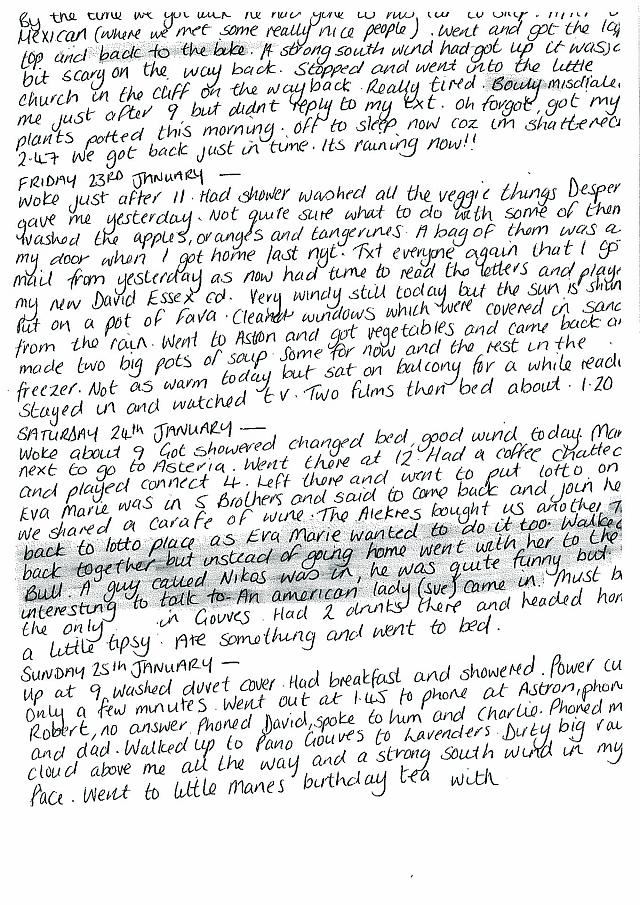 By the time we got back he had gone to
Mexican (where we met some really nice people). Went and got the
top and back to the bike. A strong south wind had got up it was
but scary on the way back. Stopped and went into the little
church in the cliff on the way back. Really tired. misdiale
me just after 9 but didnt reply to my txt. Oh forgot, got my
plants potted this morning. Off to sleep now coz im shattered
2.47 we got back just in time. Its raining now!!
FRIDAY 23RD JANUARY —
Woke just after 11. Had shower washed all the veggie things Desper
gave me yesterday. Not quite sure what to do with some of them
washed the apples, oranges and tangerines. A bag of them was a
my door when I got home last nyt. Txt everyone again that I go
mail from yesterday as now had time to read the letters and playe
my new David Essex cd. Very windy still today but the sun is shin
Put on a pot of Fava. Cleaned windows which were covered in sand
from the rain. Went to Aston and got vegetables and came back a
made two big pots of soup. Some for now and the rest in the
freezer. Not as warm today but sat on balcony for a while readi
Stayed in and watched t.v. Two films then bed about. 1.20
SATURDAY 24TH JANUARY —
Woke about 9 Got showered changed bed, good wind today. Mar
next to go to Asteria. Went there at 12. Had a coffee chatted
and played connect 4. Left there and went to put lotto on
Eva Marie was in 5 Brothers and said to come back and join he
we shared a carafe of wine. The Alekres bought us another
back to lotto place as Eva Marie wanted to do it too. Walked
back together but instead of going home went with her to the
Bull. A guy called Nikos was in, he was quite funny but
interesting to talk to. An american lady (sue) came in. Must b
the only in Gouves. Had 2 drinks there and headed hom
a little tipsy. Ate something and went to bed.
SUNDAY 25TH JANUARY —
Up at 9 washed duvet cover. Had breakfast and showered. Power cu
Only a few minutes. Went out at 1.45 to phone at Astron, phon
Robert, no answer. Phoned David, spoke to him and Charlie. Phoned m
and dad. Walked up to Pano Gouves to Lavenders. Dirty big
cloud above me all the way and a strong south wind in my
Face. Went to little Manes birthday tea with